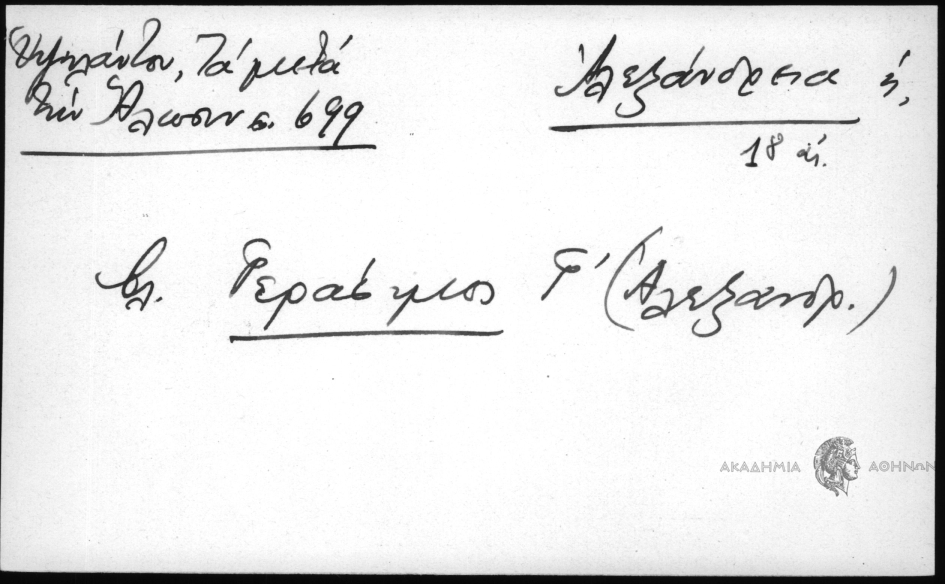 Ὑψηλάντου, Τά μετά
τήν Ἅλωσιν σ. 699
Ἀλεξάνδρεια ἡ,
18 αἰ.
βλ. Γεράσιμος Γ' (Ἀλεξανδρ.)
ΑΚΑΔΗΜΙΑ ΑΘΗΝΩΝ